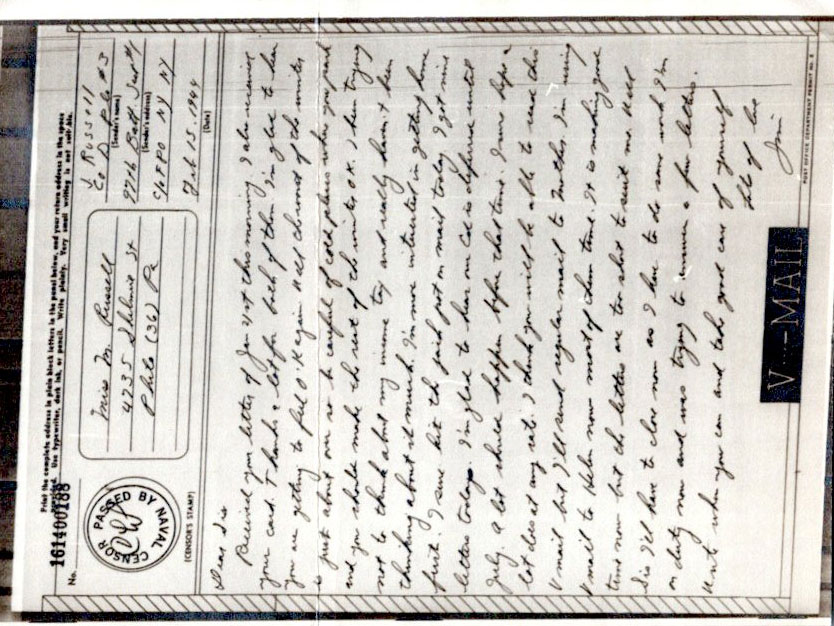 Print the complete address in plain block letters in the panel below, and your return address in the space
provided. Use typewriter, dark ink, or pencil. Write plainly. Very small writing is not suitable.
No. 161400188
PASSED BY NAVAL CENSOR
(CENSOR'S STAMP)
Miss M. Russell
4735 St
Phila (36) Pa
J Russell
Co D Plt #3
(Sender's name)
97th Batt
(Sender's address)
c/o FPO NY NY
Feb 15, 1944
(Date)
Dear Sis
Received your letter of Jan 21st this morning I also received
your card. Thanks a lot for both of them. I'm glad to hear
you are getting to feel O.K again. Well the worst of the winter
is just about over so be careful of cold places when you park
and you should make the rest of the winter O.K. I been trying
not to think about my money and really haven't been
thinking about it much. I'm more interested in getting home
first. I sure hit the jack pot on mail today. I got nine
letters today. I'm glad to hear on Ced is deferred until
July. A lot should happen before that time. I sure hope a
lot does at any rate. I think you will be able to read this
V mail but I'll send regular mail to Mother. I'm using
V mail to Helen now most of them time. It is making good
time now but the letters are too short to suit me. Well
Sis I'll have to close now as I have to do some work I'm
on duty now and was trying to answer a few letters.
Write when you can and take good care of yourself
Lots of love
Jim
V···—MAIL
POST OFFICE DEPARTMENT PERMIT NO. 5